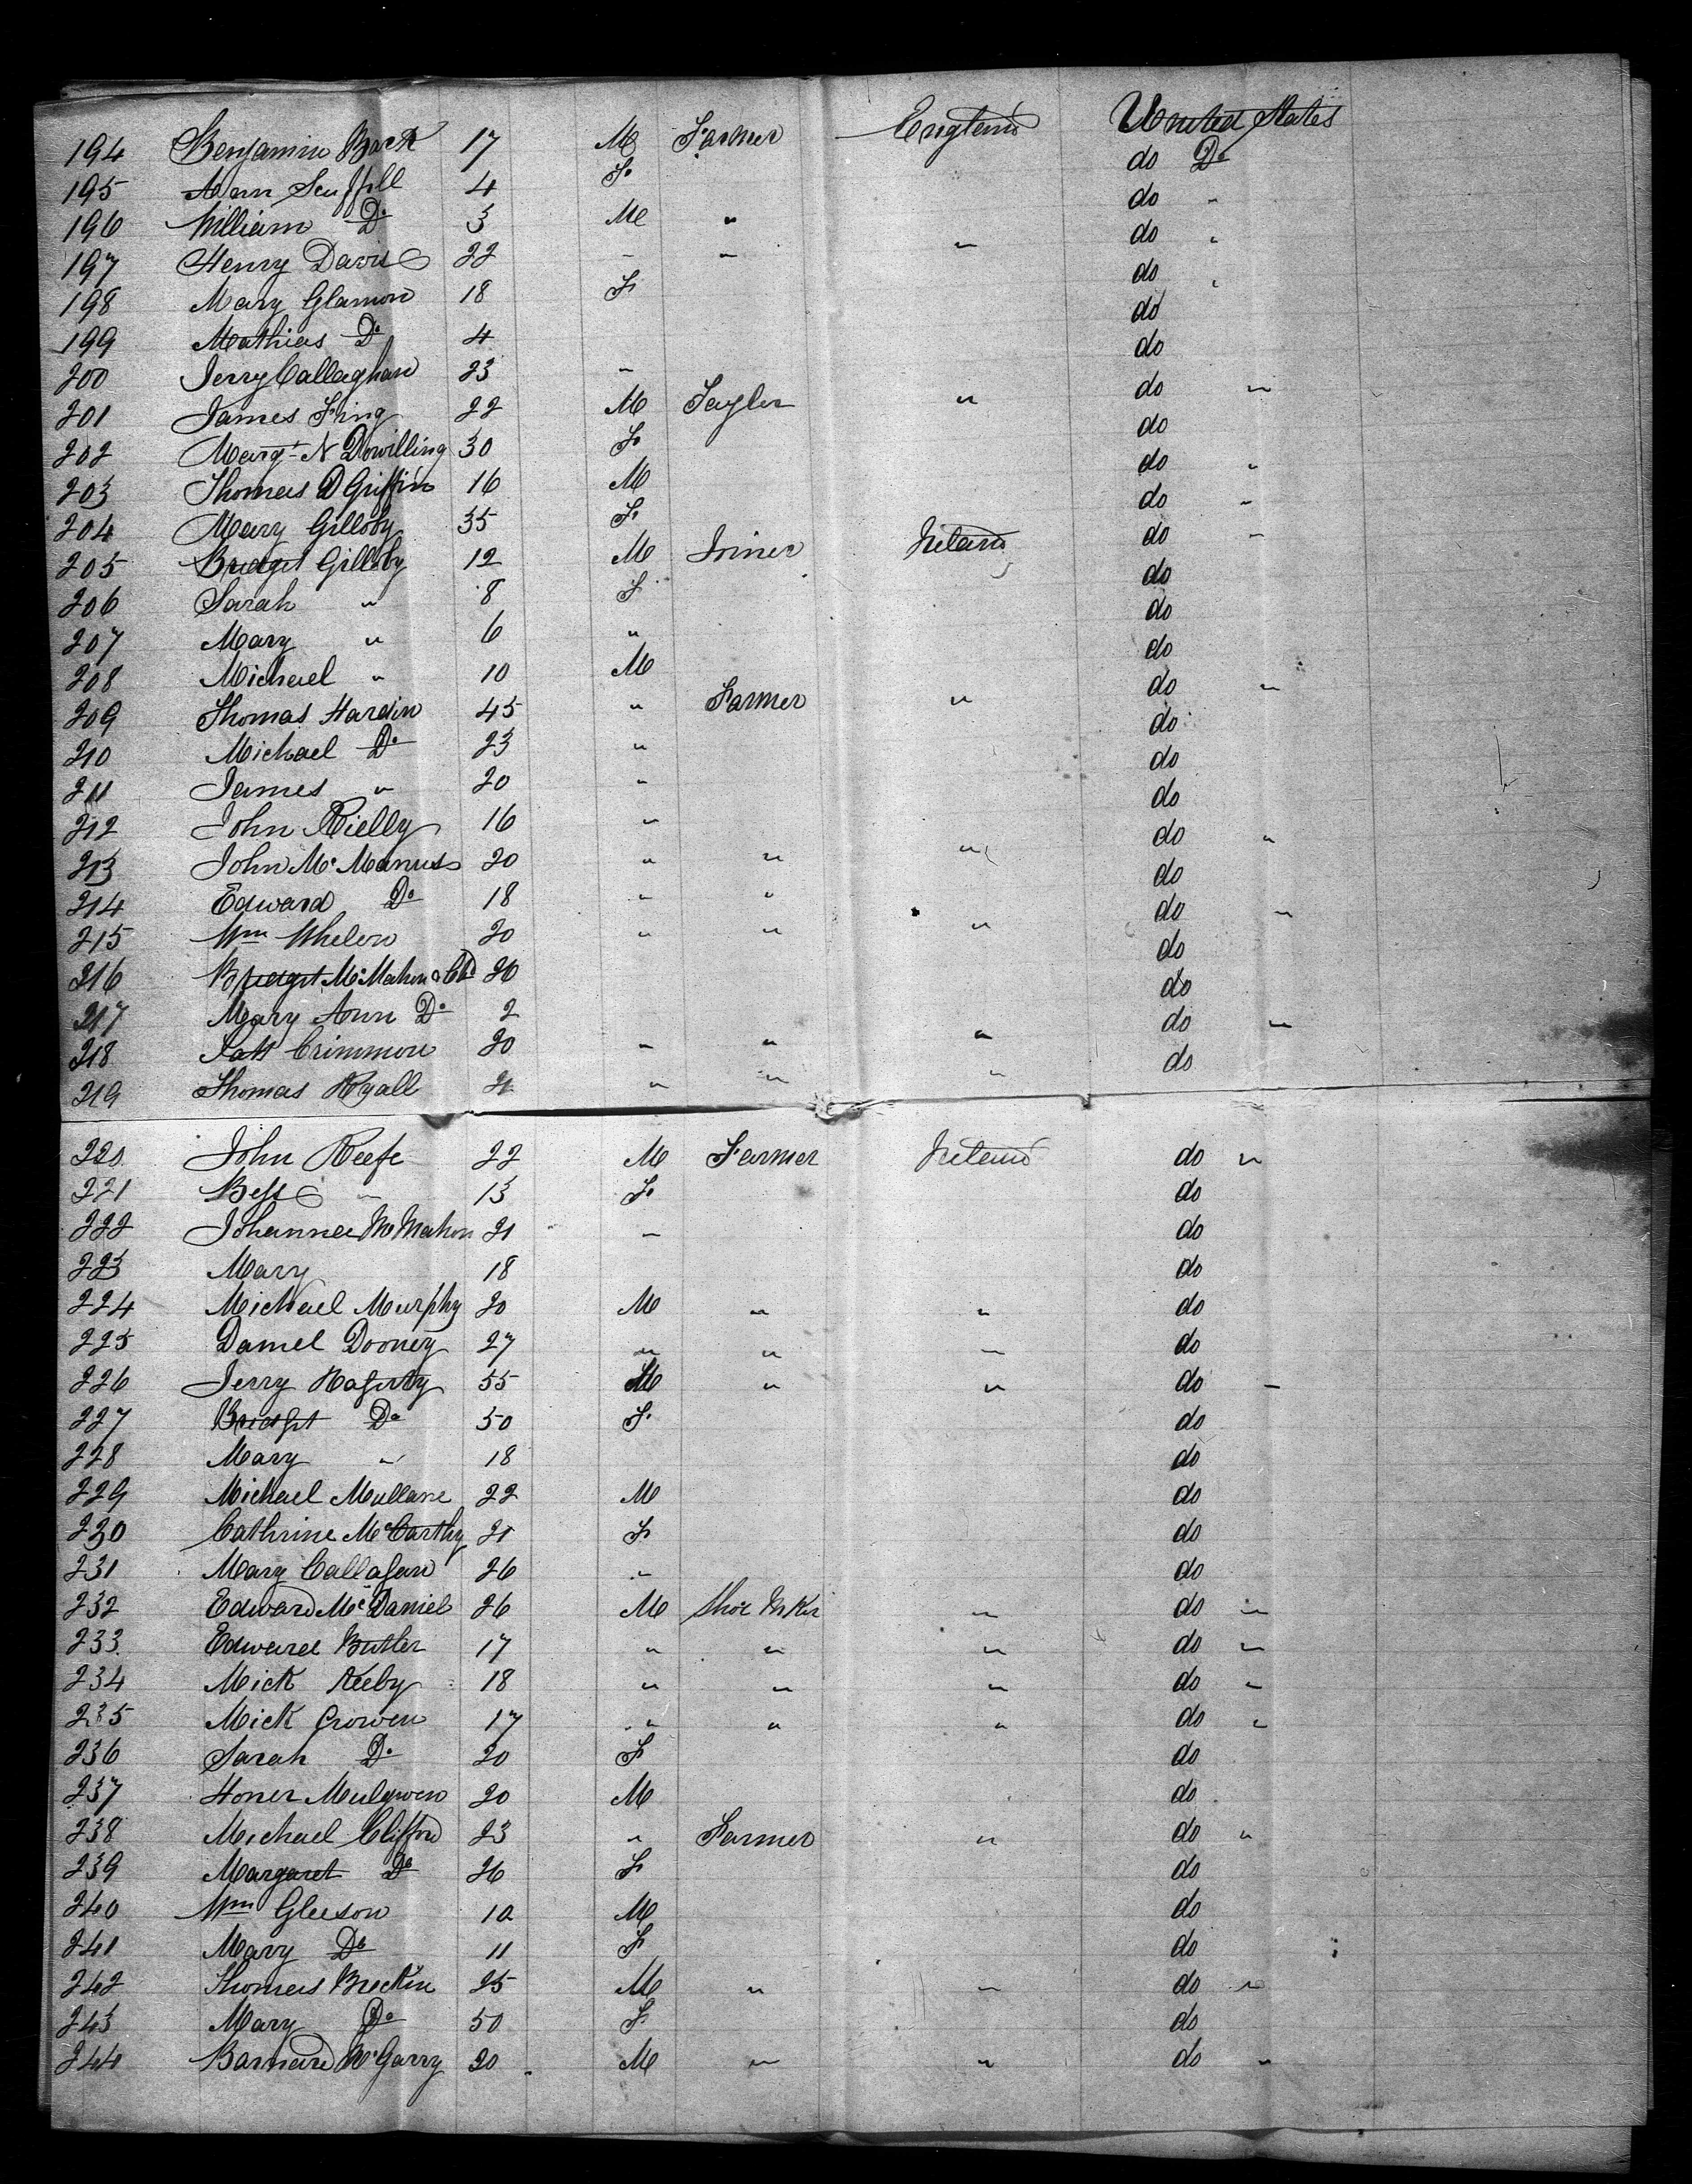 194 Benjamin Back 17 M Farmer England United States
195 Ann Scuffill 4 F do Do
196 William Do 3 M " do "
197 Henry Davis 22 " " " do "
198 Mary Glamon 18 F do "
199 Mathias Do 4 do
200 Jerry Callaghan 23 " do
201 James Fing 22 M Tayler " do "
202 Margt N Dowilling 30 F do
203 Thomas D Griffin 16 M do "
204 Mary Gilloby 35 F do "
205 Bridget Gilloby 12 M Joiner Ireland do "
206 Sarah " 8 F do
207 Mary " 6 " do
208 Michael " 10 M do
209 Thomas Hardin 45 " Farmer " do "
210 Michael Do 23 " do
211 James " 20 " do
212 John Rielly 16 " do
213 John McManus 20 " " " do "
214 Edward Do 18 " " do
215 Wm Whelen 20 " " " do "
216 Bridget McMahon & Chd 26 do
217 Mary Ann Do 2 do
218 Patt Crimmon 20 " " " do "
219 Thomas Ryall 21 " " " do
220 John Keefe 22 M Farmer Ireland do "
221 Bess " 13 F do
222 Johanna McMahon 21 " do
223 Mary 18 do
224 Michael Murphy 20 M " " do
225 Daniel Dooney 27 " " " do
226 Jerry Hagerty 55 M " " do "
227 Bridget Do 50 F do
228 Mary " 18 do
229 Michael Mullane 22 M do
230 Cathrine McCarthy 21 F do
231 Mary Callagan 26 " do
232 Edward McDaniel 26 M Shoe Mker " do "
233 Edward Butler 17 " " " do "
234 Mick Keeby 18 " " " do "
235 Mick Crowen 17 " " " do "
236 Sarah Do 20 F do
237 Honer 20 M do
238 Michael Clifford 23 " Farmer " do "
239 Margaret Do 26 F do
240 Wm Gleeson 10 M do
241 Mary Do 11 F do
242 Thomas Breckin 25 M " " do "
243 Mary Do 50 F do
244 Barnard McGarry 20 M " " do "